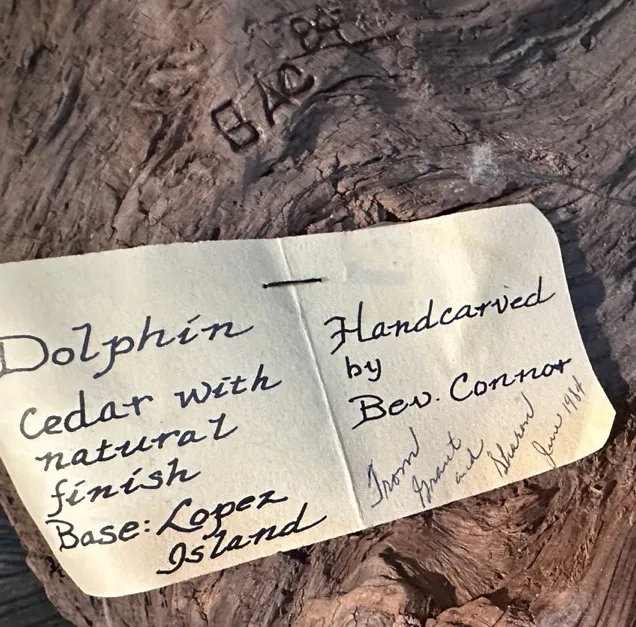 84
BAC
Dolphin
Cedar with
natural
finish
Base: Lopez
Island
Handcarved
by
Bev. Connor
From
Grant
and
Sharon
June 1984